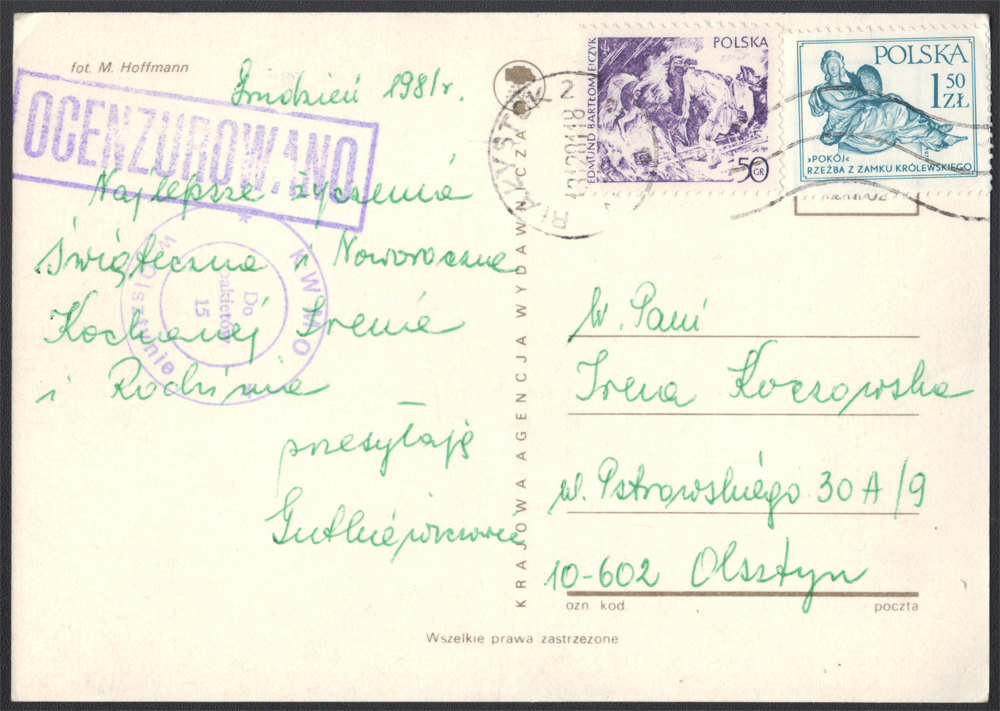 fot. M. Hoffmann
Grudzień 1981r.
OCENZUROWANO
Najlepsze życzenia
Świąteczne i Noworoczne
Kochanej Irenie
i Rodzinie
przesyłają
Gutkiewiczowie
KWMO
w Olsztynie
Do
pakietów
15
KRAJOWA AGENCJA WYDAWNICZA
BIAŁYSTOK 2
POLSKA
EDMUND BARTŁOMIEJCZYK
50 GR
POLSKA
1 50
ZŁ
»POKÓJ«
RZEŹBA Z ZAMKU KRÓLEWSKIEGO
W. Pani
Irena Koczowska
ul. Pstrowskiego 30 A/9
10-602 Olsztyn
ozn kod
poczta
Wszelkie prawa zastrzeżone